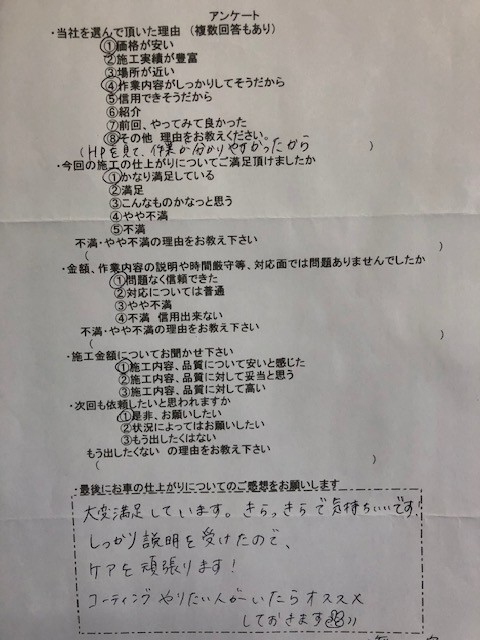 アンケート
・当社を選んで頂いた理由 (複数回答もあり)
①価格が安い
②施工実績が豊富
③場所が近い
④作業内容がしっかりしてそうだから
⑤信用できそうだから
⑥紹介
⑦前回、やってみて良かった
⑧その他 理由をお教えください。
(HPを見て、作業が分かりやすかったから )
・今回の施工の仕上がりについてご満足頂けましたか
①かなり満足している
②満足
③こんなものかなっと思う
④やや不満
⑤不満
不満・やや不満の理由をお教え下さい
( )
・金額、作業内容の説明や時間厳守等、対応面では問題ありませんでしたか
①問題なく信頼できた
②対応については普通
③やや不満
④不満 信用出来ない
不満・やや不満の理由をお教え下さい
( )
・施工金額についてお聞かせ下さい
①施工内容、品質について安いと感じた
②施工内容、品質に対して妥当と思う
③施工内容、品質に対して高い
・次回も依頼したいと思われますか
①是非、お願いしたい
②状況によってはお願いしたい
③もう出したくはない
もう出したくない の理由をお教え下さい
( )
・最後にお車の仕上がりについてのご感想をお願いします
大変満足しています。きらっきらで気持ちいいです!
しっかり説明を受けたので、
ケアを頑張ります!
コーティングやりたい人がいたらオススメ
しておきます